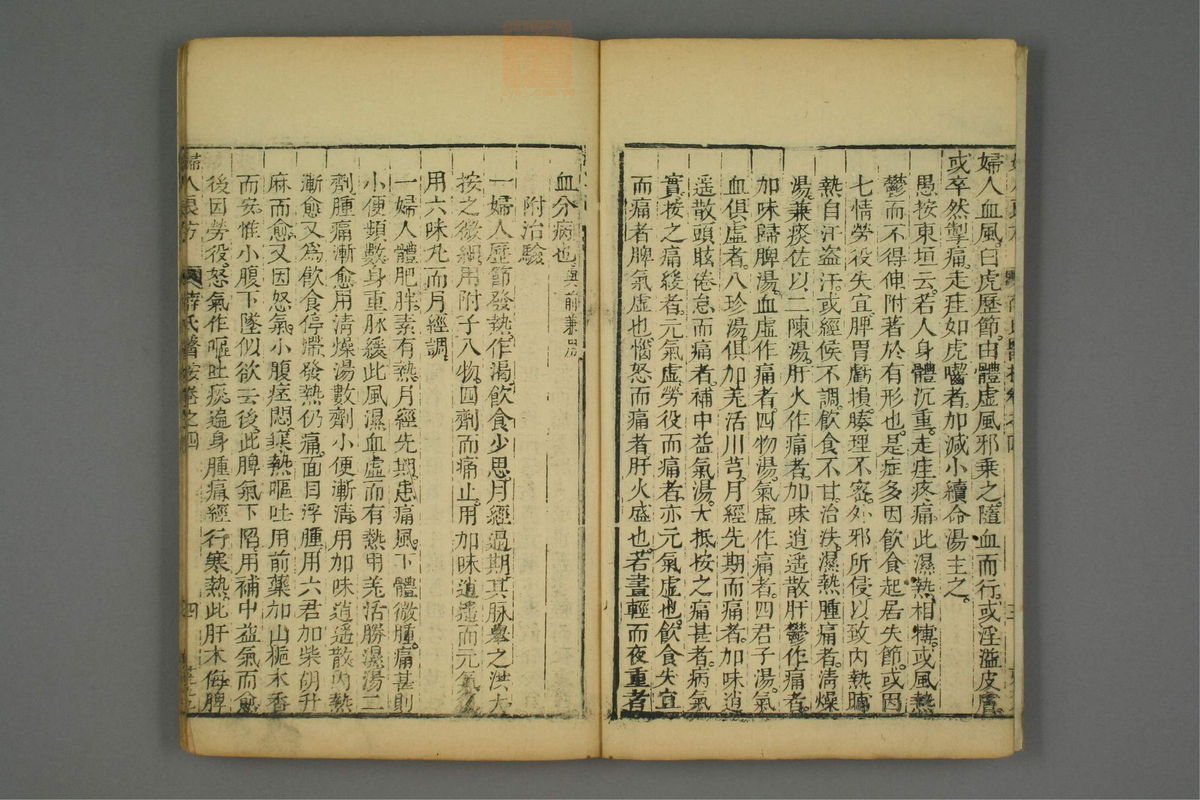 婦人血風。曰虎歷節。由體虛風邪乘之。隨血而行。或淫溢皮膚。
或卒然掣痛。走疰如虎嚙者。加減小續命湯主之。
愚按東垣云。若人身體沉重。走疰疼痛。此濕熱相搏。或風熱
鬱而不得伸附著於有形也。是症多因飲食起居失節。或因
七情勞役失宜。脾胃虧損。腠理不密。外邪所侵。以致內熱晡
熱。自汗盜汗。或經候不調。飲食不甘。治法。濕熱腫痛者。清燥
湯。兼痰佐以二陳湯。肝火作痛者。加味逍遥散。肝鬱作痛者。
加味歸脾湯。血虛作痛者。四物湯。氣虛作痛者。四君子湯。氣
血俱虛者。八珍湯。俱加羌活川芎。月經先期而痛者。加味逍
遥散。頭眩倦怠而痛者。補中益氣湯。大抵按之痛甚者。病氣
實。按之痛緩者。元氣虛。勞役而痛者。亦元氣虛也。飲食失宜
而痛者。脾氣虛也。惱怒而痛者。肝火盛也。若晝輕而夜重者
血分病也 與前兼用
附治驗
一婦人歷節發熱。作渴。飲食少思。月經過期。其脉舉之洪大
按之微細。用附子八物。四劑而痛止。用加味逍遥而元氣
用六味丸而月經調
一婦人體肥胖。素有熱。月經先期。患痛風。下體微腫。痛甚則
小便頻數。身重脉緩。此風濕血虛而有熱。用羌活勝濕湯二
劑。腫痛漸愈。用清燥湯數劑。小便漸清。用加味逍遥散。內熱
漸愈。又為飲食停滯。發熱仍痛。面目浮腫。用六君加柴胡升
麻而愈。又因怒氣。小腹痞悶。寒熱嘔吐。用前藥加山梔木香
而安。惟小腹下墜。似欲去後。此脾氣下陷。用補中益氣而愈
後因勞役怒氣。作嘔吐痰。遍身腫痛。經行寒熱。此肝木侮脾
婦人良方 薛氏醫按卷之四 四